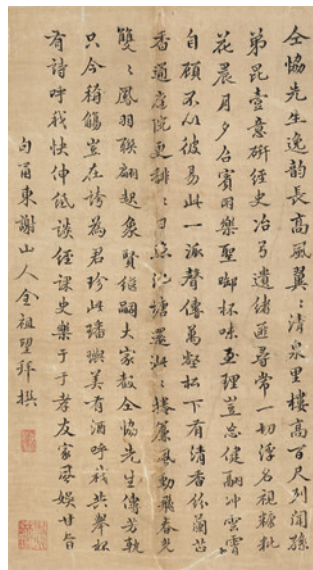 仝恊先生逸韵長高風翼〻清泉里樓高百尺列閒孫
弟昆壹意研經史冶弓遺緒匪尋常一切浮名視糠粃
花晨月夕召賓朋樂聖啣杯味至理豈忘健翮冲雲霄
自顧不以彼易此一派聲傳萬壑松下有清香份蘭茝
香通庭院更緋〻日照池塘還泚〻捲簾風動飛春光
雙〻鳳羽聯翩起象賢繼嗣大家教仝恊先生傳芳軌
只今稱觴豈在誇為君珍此璠璵美有酒呼我共舉杯
有詩呼我快伸紙談經課史樂于于孝友家風娛甘旨
句甬東謝山人全祖望拜撰